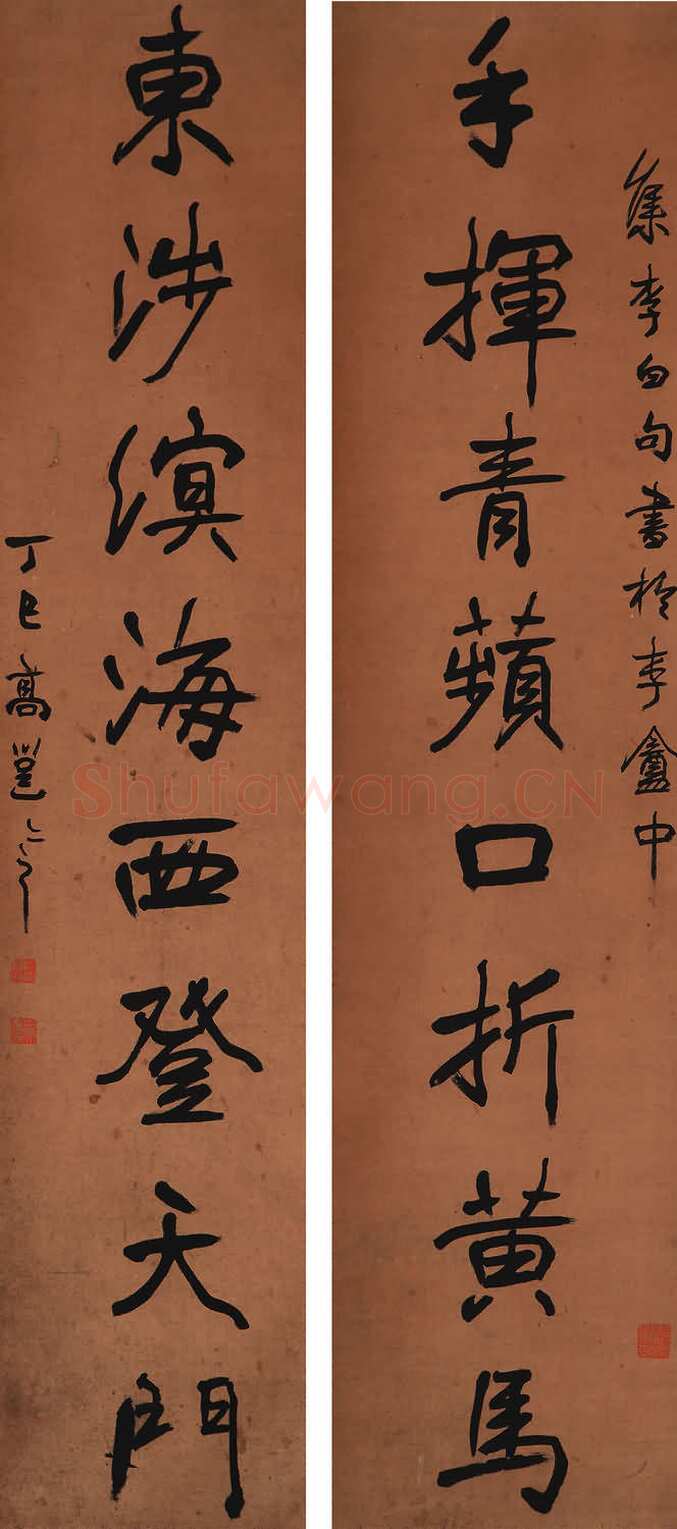 集李白句書於李盦中
手揮青蘋口折黃馬
東涉溟海西登天門
丁巳高邕
Shufawang.CN